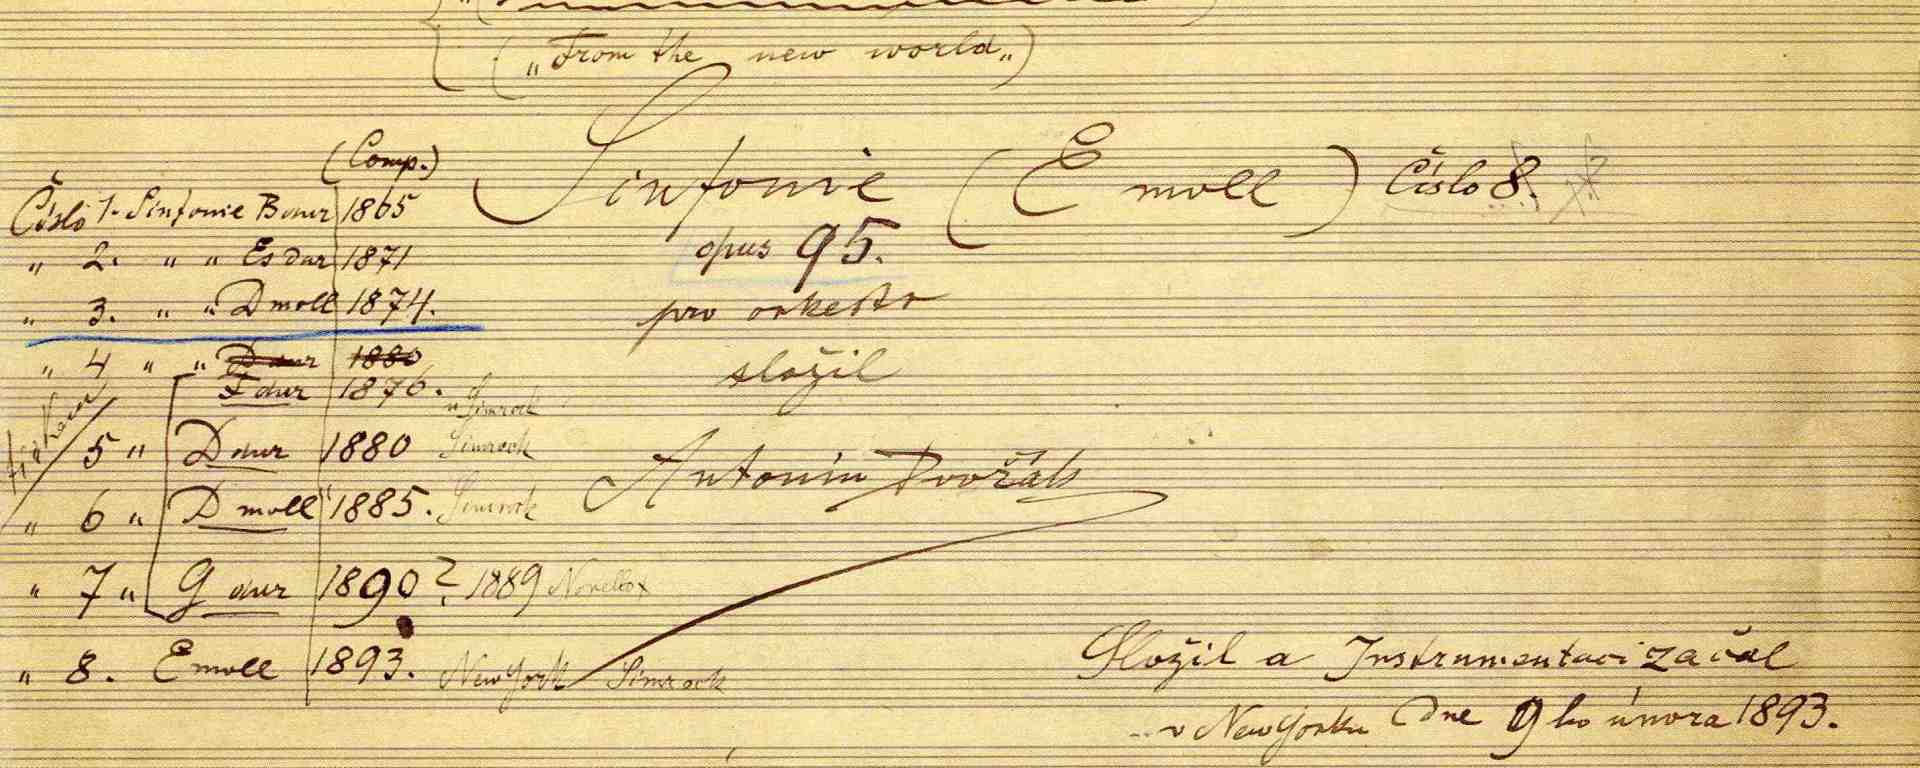 („From the new world„)
Sinfonie (E moll) Číslo 8.
opus 95.
pro orkestr
složil
Antonín Dvořák
(Comp.)
Číslo 1. Sinfonie B dur 1865
„ 2. „ „ Es dur 1871
„ 3. „ „ D moll 1874.
„ 4 „ „ D dur 1880
F dur 1876. u Simrock
5 „ D dur 1880 Simrock
„ 6 „ D moll 1885. Simrock
„ 7 „ G dur 1890? 1889 Novello
„ 8. E moll 1893. New York Simrock
Složil a Instrumentaci začal
v New Yorku dne 9ho února 1893.